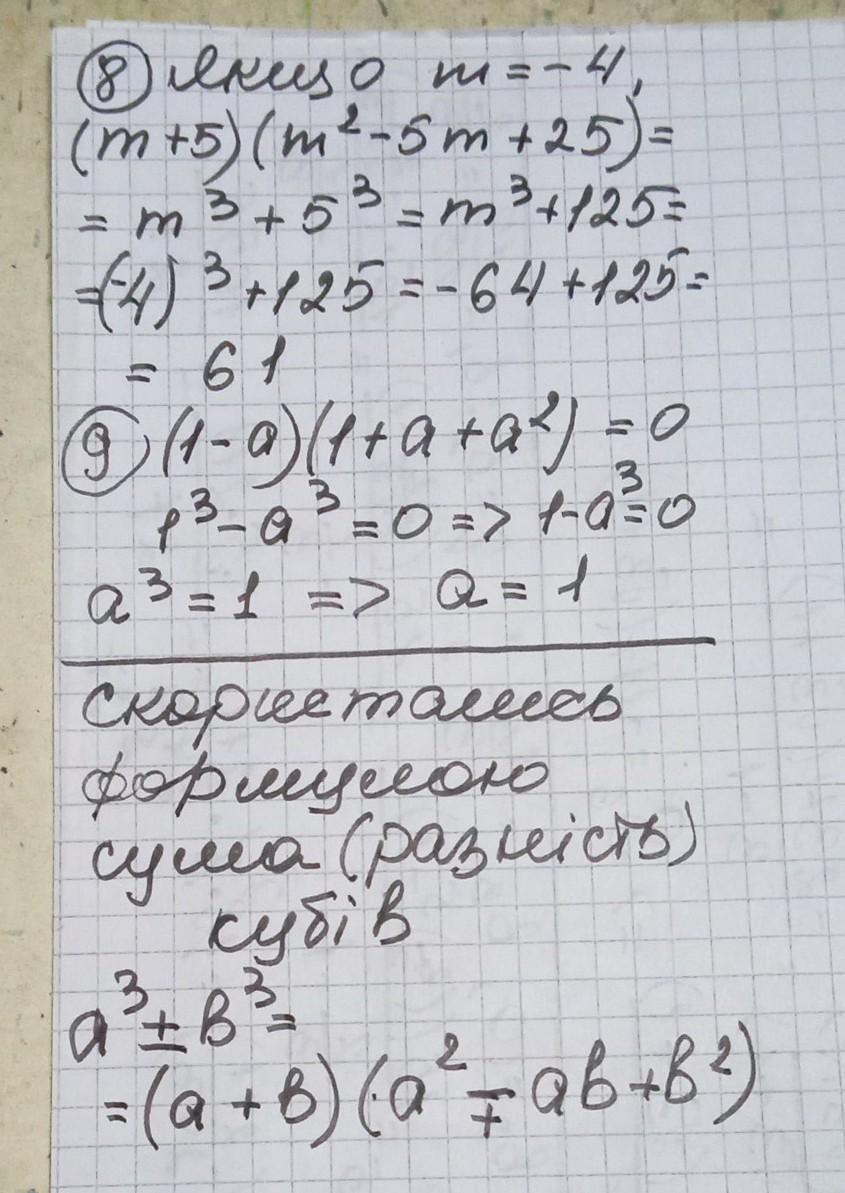 ⑧ Якщо m = -4,
(m+5)(m²-5m+25)=
= m³ + 5³ = m³+125=
=(-4)³+125=-64+125=
= 61
⑨ (1-a)(1+a+a²) = 0
1³-a³=0 => 1-a³=0
a³=1 => a=1
Скористались
формулою
сума (разність)
кубів
a³±в³=
=(a+в)(a²∓aв+в²)